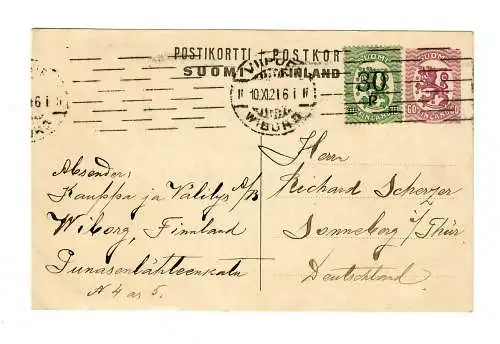 POSTIKORTTI - POSTKORT
SUOMI FINLAND
VIIPURI
10.XI.21.6 I
WIBORG
SUOMI
30
P
FINLAND
SUOMI
60
FINLAND
Absender:
Kauppa ja Välitys A/B
Wiborg, Finnland
Punasenlähteenkatu
N 4 as 5.
Herrn
Richard Scherzer
Sonneberg i/Thür.
Deutschland